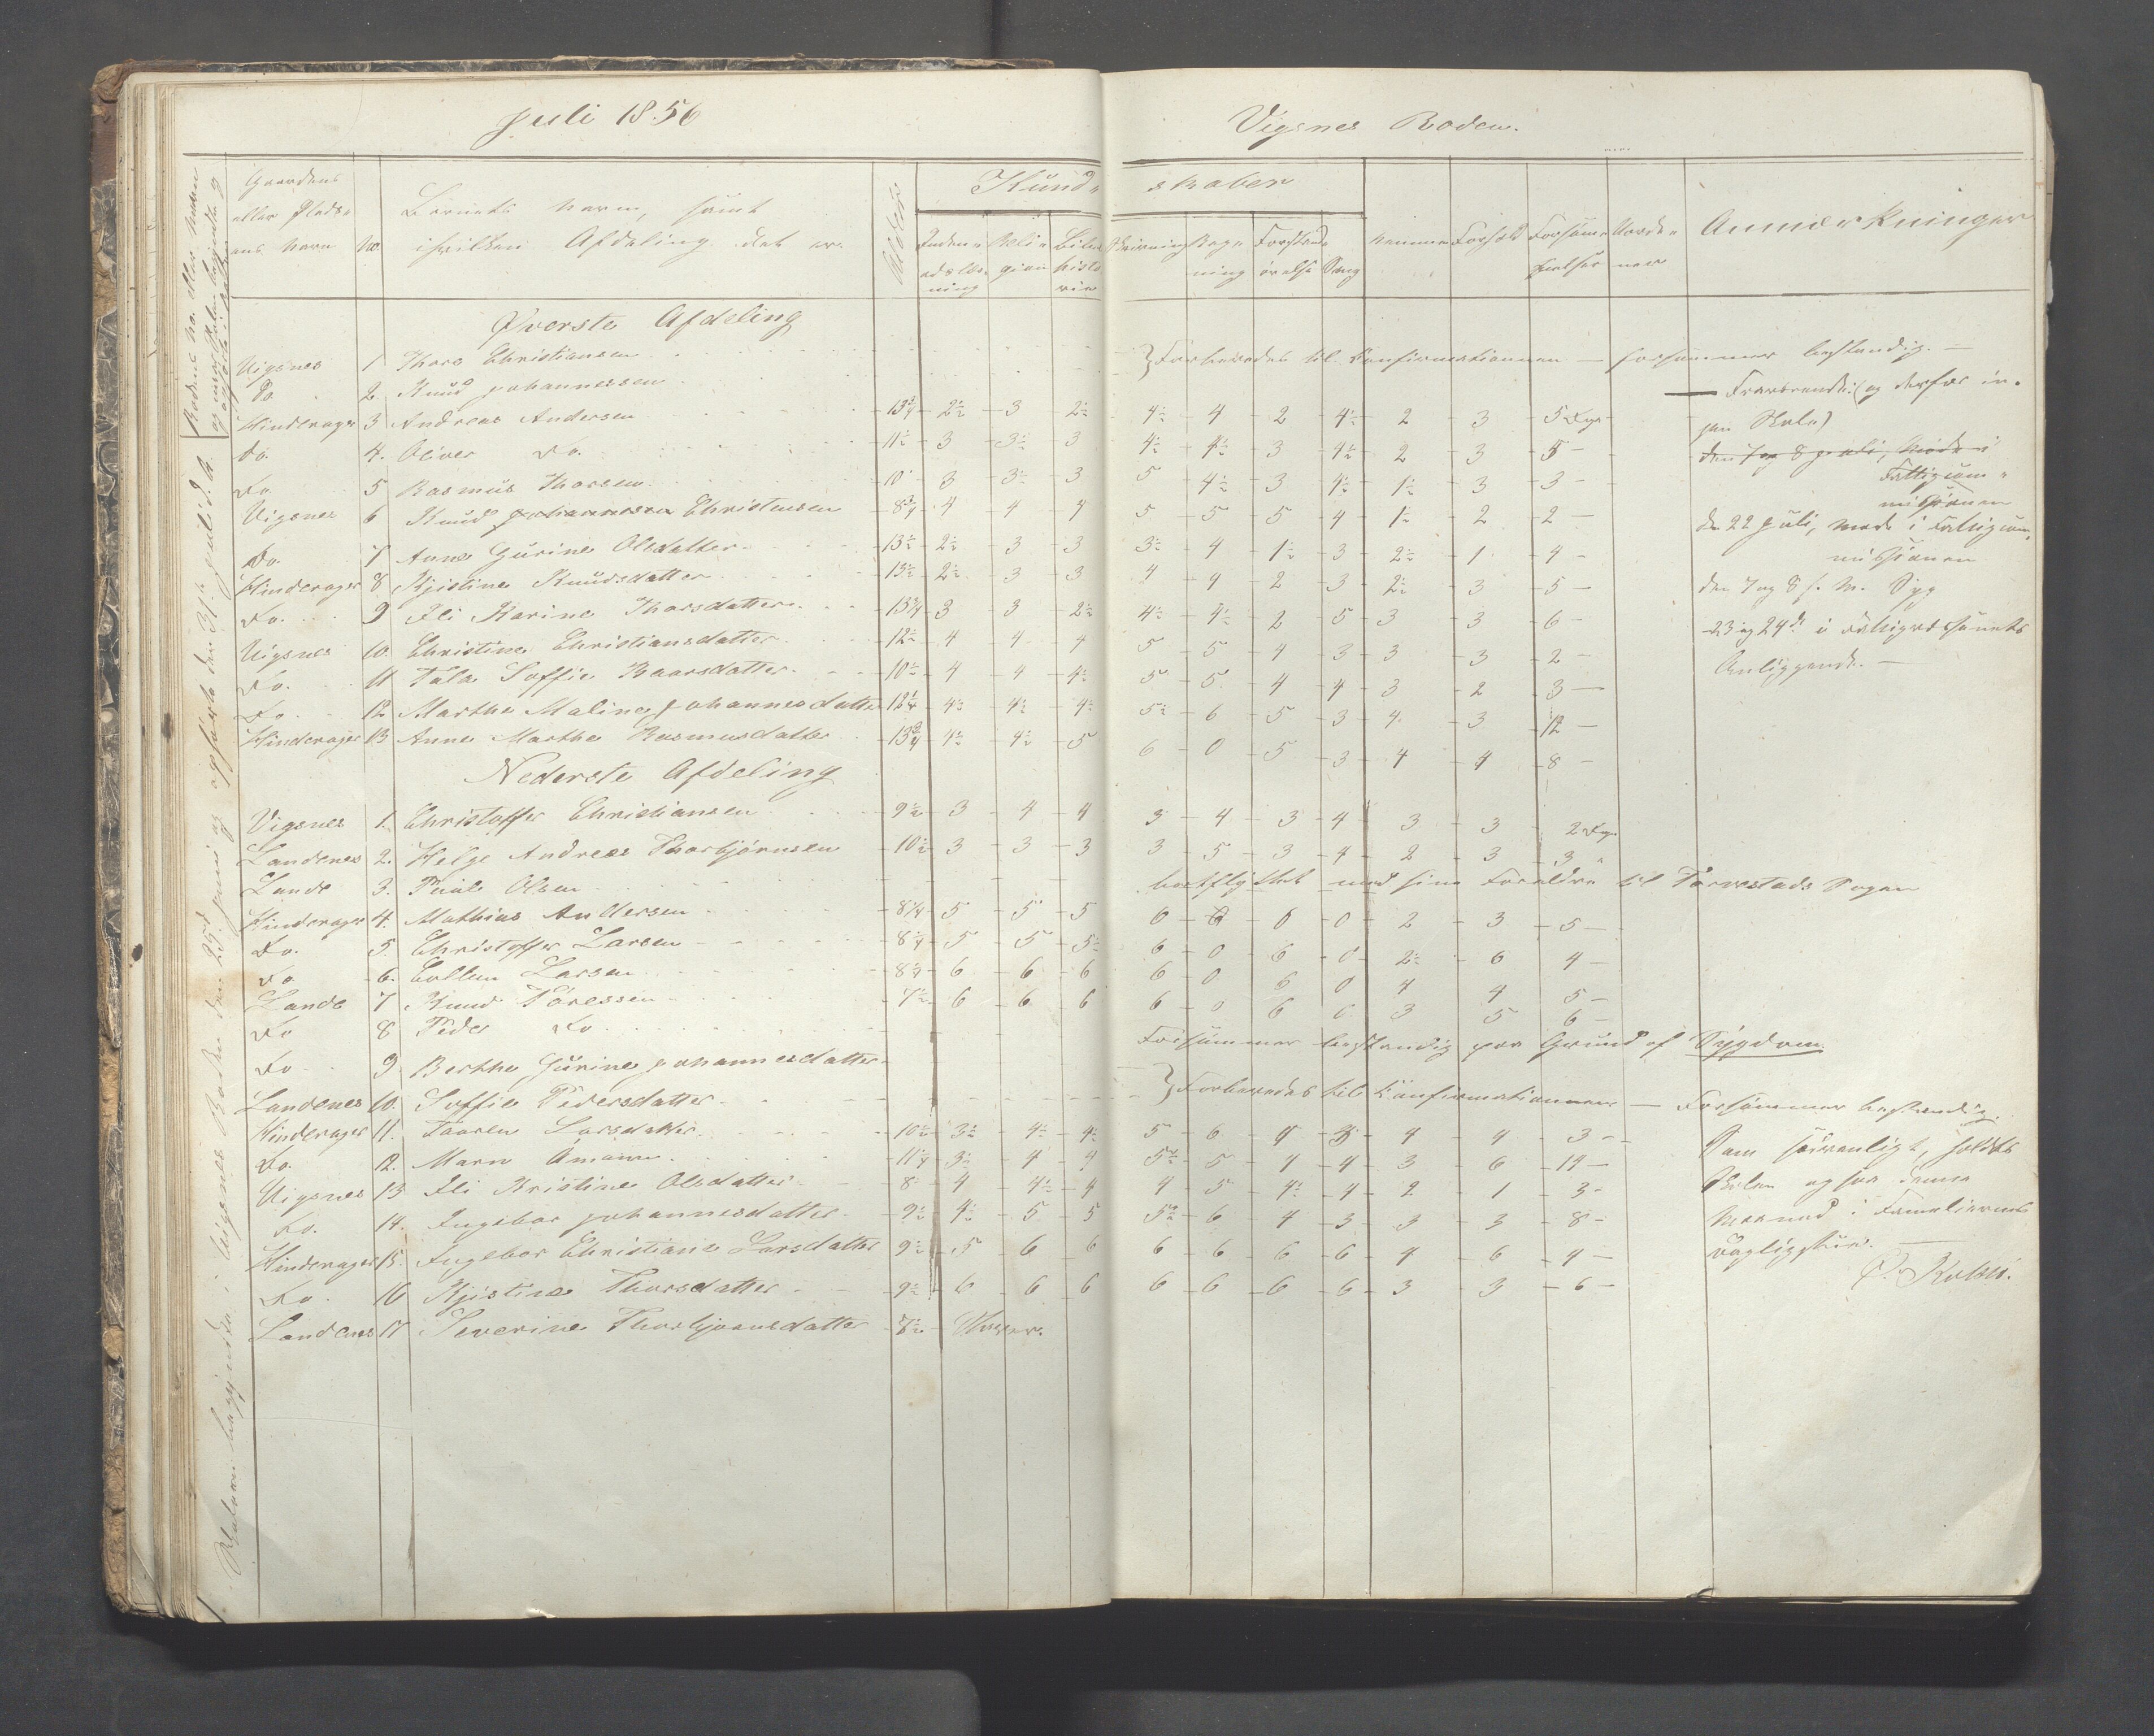 Juli 1856
Vigsnes Roden.
Gaardens eller Pladsens Navn
No.
Barnets Navn, samt i hvilken Afdeling det er.
Alder
Kundskaber
Indenadslæsning
Religion
Bibelhistorie
Skrivning
Regning
Forstandsøvelse
Sang
Nemme
Forhold
Forsømmelser
Anmærkninger
Øverste Afdeling
Vigsnes 1 Thore Christiansen } Forberedes til Confirmationen — forsømmer bestandig. —
Do. 2. Knud Johannessen
Hinderager 3 Andreas Andersen 13¾ 2½ 3 2½ 4½ 4 2 4½ 2 3 5 Dge
Do. 4. Oliver Do. 11½ 3 3½ 3 4½ 4½ 3 4½ 2 3 5
Do 5 Rasmus Thorsen 10 3 3½ 3 5 4½ 3 4½ 1½ 3 3
Vigsnes 6 Knud Johannessen Christensen 8¾ 4 4 4 5 5 5 4 1½ 2 2
Do. 7 Anne Gurine Olsdatter 13½ 2½ 3 3 3½ 4 1½ 3 2½ 1 4
Hinderager 8 Kjistine Knudsdatter 13½ 2½ 3 3 4 4 2 3 2½ 3 5
Do. 9 Eli Karine Thorsdatter 13¾ 3 3 2½ 4½ 4½ 2 5 3 3 6
Vigsnes 10. Christine Christiansdatter 12½ 4 4 4 5 5 4 3 3 3 2
Do. 11 Tale Soffie Baarsdatter 10½ 4 4 4½ 5 5 4 4 3 2 3
Do. 12 Marthe Maline Johannesdatter 12¼ 4½ 4½ 4½ 5½ 6 5 3 4 3 12
Hinderager 13 Anne Marthe Rasmusdatter 13¾ 4½ 4½ 5 6 0 5 3 4 4 8
Fraværende (og derfor ingen Skole)
den 7 og 8 Juli, Møde i Fattigcommissionen
den 22 Juli, Møde i Fattigcommissionen
den 7 og 8 s. M. Syg
23 og 24de i
Anliggende. —
Nederste Afdeling
Vigsnes 1. Christoffer Christiansen 9½ 3 4 4 3 4 3 4 3 3 2 Dge
Landenes 2. Helge Andreas Thorbjørnsen 10½ 3 3 3 3 5 3 4 2 3 3 "
Lande 3. Paul Olsen bortflyttet med sine Forældre til Torvestads Sogn
Hinderager 4. Mathias Andersen 8¼ 5 5 5 6 6 6 0 2 3 5
Do. 5. Christoffer Larsen 8¼ 5 5 5½ 6 0 6 0 2½ 6 4
Do 6. Larsen 8¼ 6 6 6 6 0 6 0 4 4 5
Lande 7 Knud Toressen 7½ 6 6 6 6 0 6 6 3 5 6
Do 8 Peder Do. Forsømmer bestandig paa Grund af Sygdom
Do 9 Berthe Gurine Johannesdatter } Forberedes til Confirmationen — Forsømmer bestandig.
Landenes 10. Soffie Pedersdatter
Hinderager 11. Taaren Larsdatter 10½ 3½ 4½ 4½ 5 6 4 3 4 4 3
Do. 12. Maren 11¼ 3½ 4 4 5½ 5 4 4 3 6 14
Vigsnes 13 Eli Kristine Olsdatter 8 4 4½ 4 4 5 4½ 4 2 1 3
Do. 14. Ingebor Johannesdatter 9½ 4½ 5 5 5½ 6 4 3 3 3 8
Hinderager 15. Ingebor Christiane Larsdatter 9½ 5 6 6 6 6 6 6 4 6 4
Do. 16 Kjistine Thorsdatter 9½ 6 6 6 6 6 6 6 3 3 6
Landenes 17 Severine Thorbjørnsdatter 7½
Som sædvanligt, holdtes
Skolen og saa denne
Maaned i Familiernes